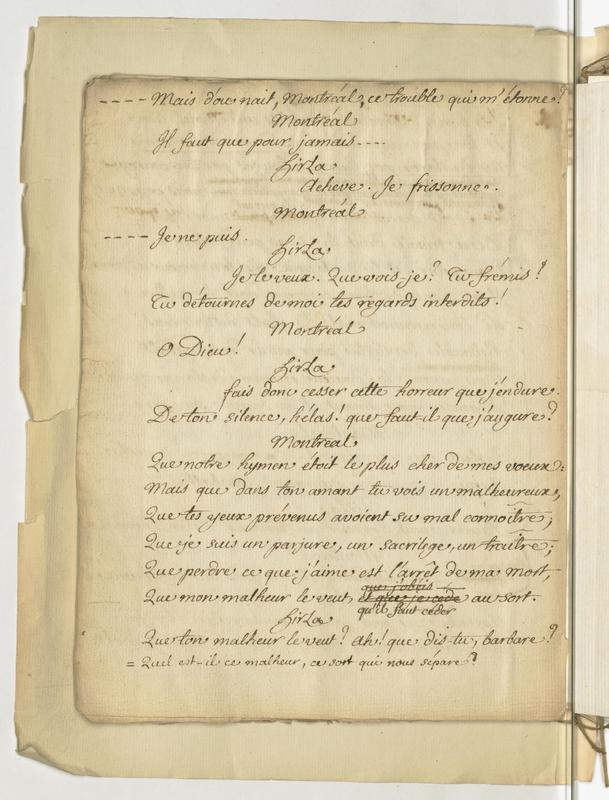 ---- Mais d'ou nait, Montréal, ce trouble qui m'étonne?
Montréal
Il faut que pour jamais....
hirza
Acheve. Je frissonne.
Montréal
---- Je ne puis.
hirza
Je le veux. Que vois-je? Tu frémis!
Tu détournes de moi tes regards interdits!
Montréal
O Dieu!
hirza
fais donc cesser cette horreur que j'endure.
De ton silence, hélas! que faut-il que j'augure?
Montréal
Que notre hymen étoit le plus cher de mes voeux:
Mais que dans ton amant tu vois un malheureux,
Que tes yeux prévenus avoient su mal connoître;
Que je suis un parjure, un sacrilege, un traître;
Que perdre ce que j'aime est l'arrêt de ma mort,
que j'obéis
Que mon malheur le veut, et que je cede au sort.
qu'il faut céder
hirza
Que ton malheur le veut? Ah! que dis-tu, barbare?
= Quel est-il ce malheur, ce sort qui nous sépare?